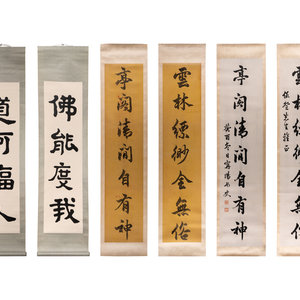 雲林縹緲全無俗
亭閣清閒自有神
雲林縹緲全無俗
亭閣清閒自有神
佛能度我
道可福人